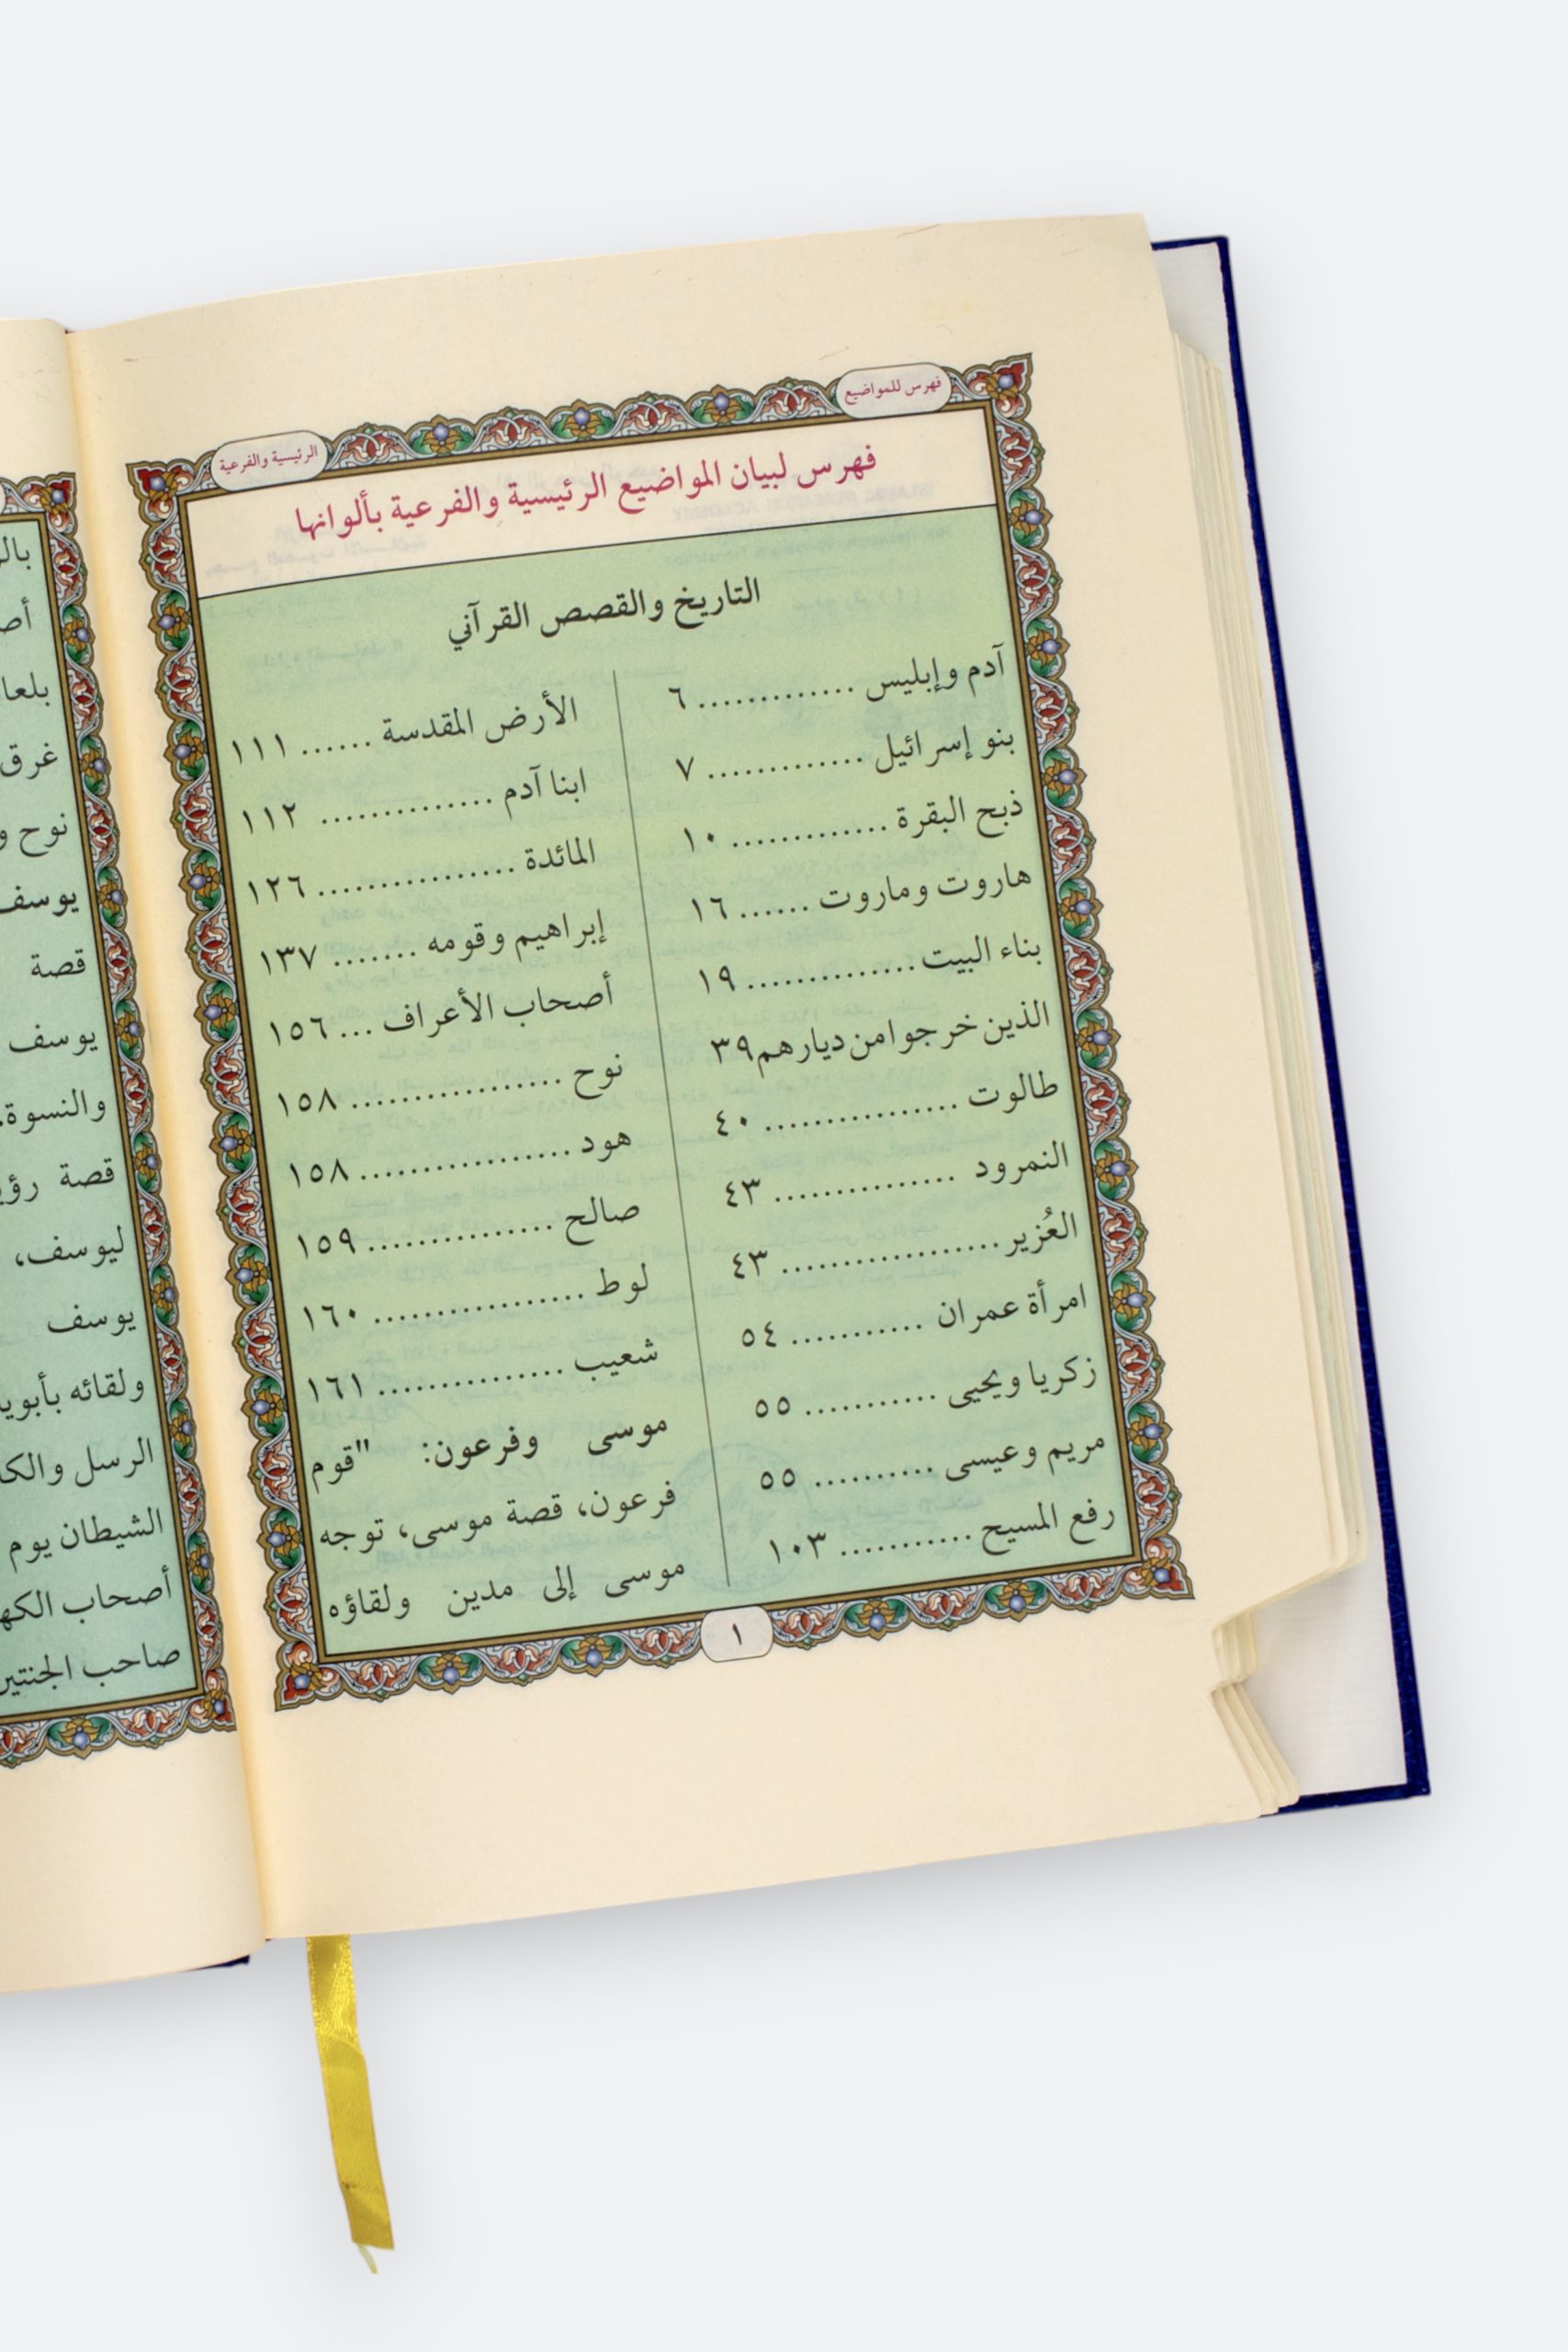 فهرس للمواضيع
الرئيسية والفرعية
فهرس لبيان المواضيع الرئيسية والفرعية بألوانها
التاريخ والقصص القرآني
آدم وإبليس ............. ٦
بنو إسرائيل ............. ٧
ذبح البقرة ............. ١٠
هاروت وماروت ...... ١٦
بناء البيت .............. ١٩
الذين خرجوا من ديارهم ٣٩
طالوت ................ ٤٠
النمرود ............... ٤٣
العُزير .................. ٤٣
امرأة عمران ........... ٥٤
زكريا ويحيى ........... ٥٥
مريم وعيسى .......... ٥٥
رفع المسيح ........... ١٠٣
الأرض المقدسة ...... ١١١
ابنا آدم .............. ١١٢
المائدة ................ ١٢٦
إبراهيم وقومه ....... ١٣٧
أصحاب الأعراف ... ١٥٦
نوح ................. ١٥٨
هود ................. ١٥٨
صالح ............... ١٥٩
لوط ................. ١٦٠
شعيب ............... ١٦١
موسى وفرعون: "قوم
فرعون، قصة موسى، توجه
موسى إلى مدين ولقاؤه
١
بلعا
غرق
نوح و
يوسف
قصة
يوسف
والنسوة.
قصة
ليوسف،
يوسف
ولقائه
الرسل
الشيطان يوم
أصحاب
صاحب